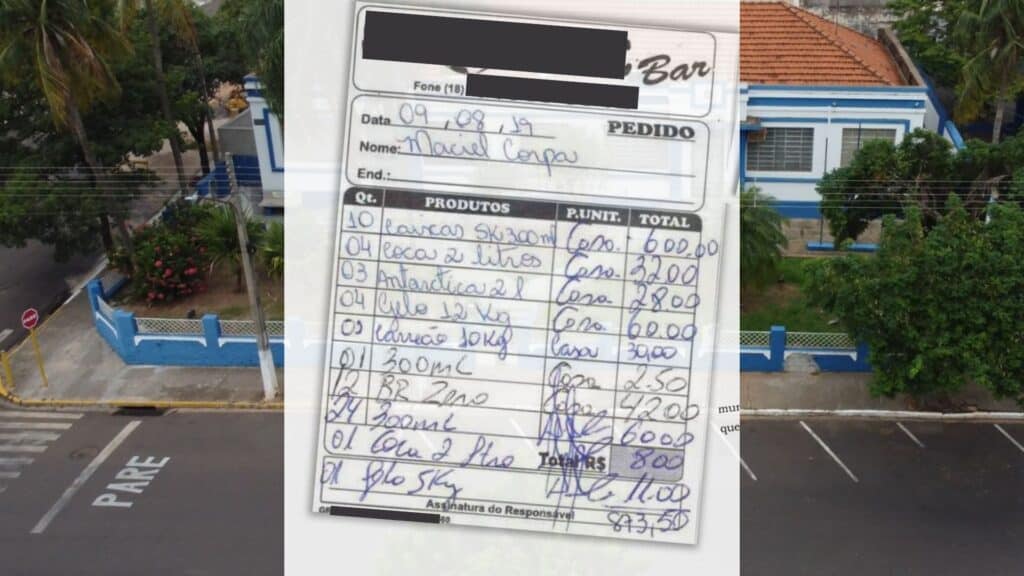 Bar
Fone (18)
Data 09, 08, 19 PEDIDO
Nome: Maciel Corpa
End.:
Qt. PRODUTOS P.UNIT. TOTAL
10 Caixas SK 300ml Casa - 600.00
04 Coca 2 litros Casa. 32.00
03 Antartica 2 l Casa 28.00
04 Gelo 12 Kg Casa 60.00
03 Carvão 10Kg Casa 30,00
01 300mL Casa 2.50
12 BR Zero Casa 42.00
24 300mL 60.00
01 Coca 2 ltro Total R$ 8.00
01 Gelo 5Kg 11.00
Assinatura do Responsável 873,50
mun
que
PARE
PARE